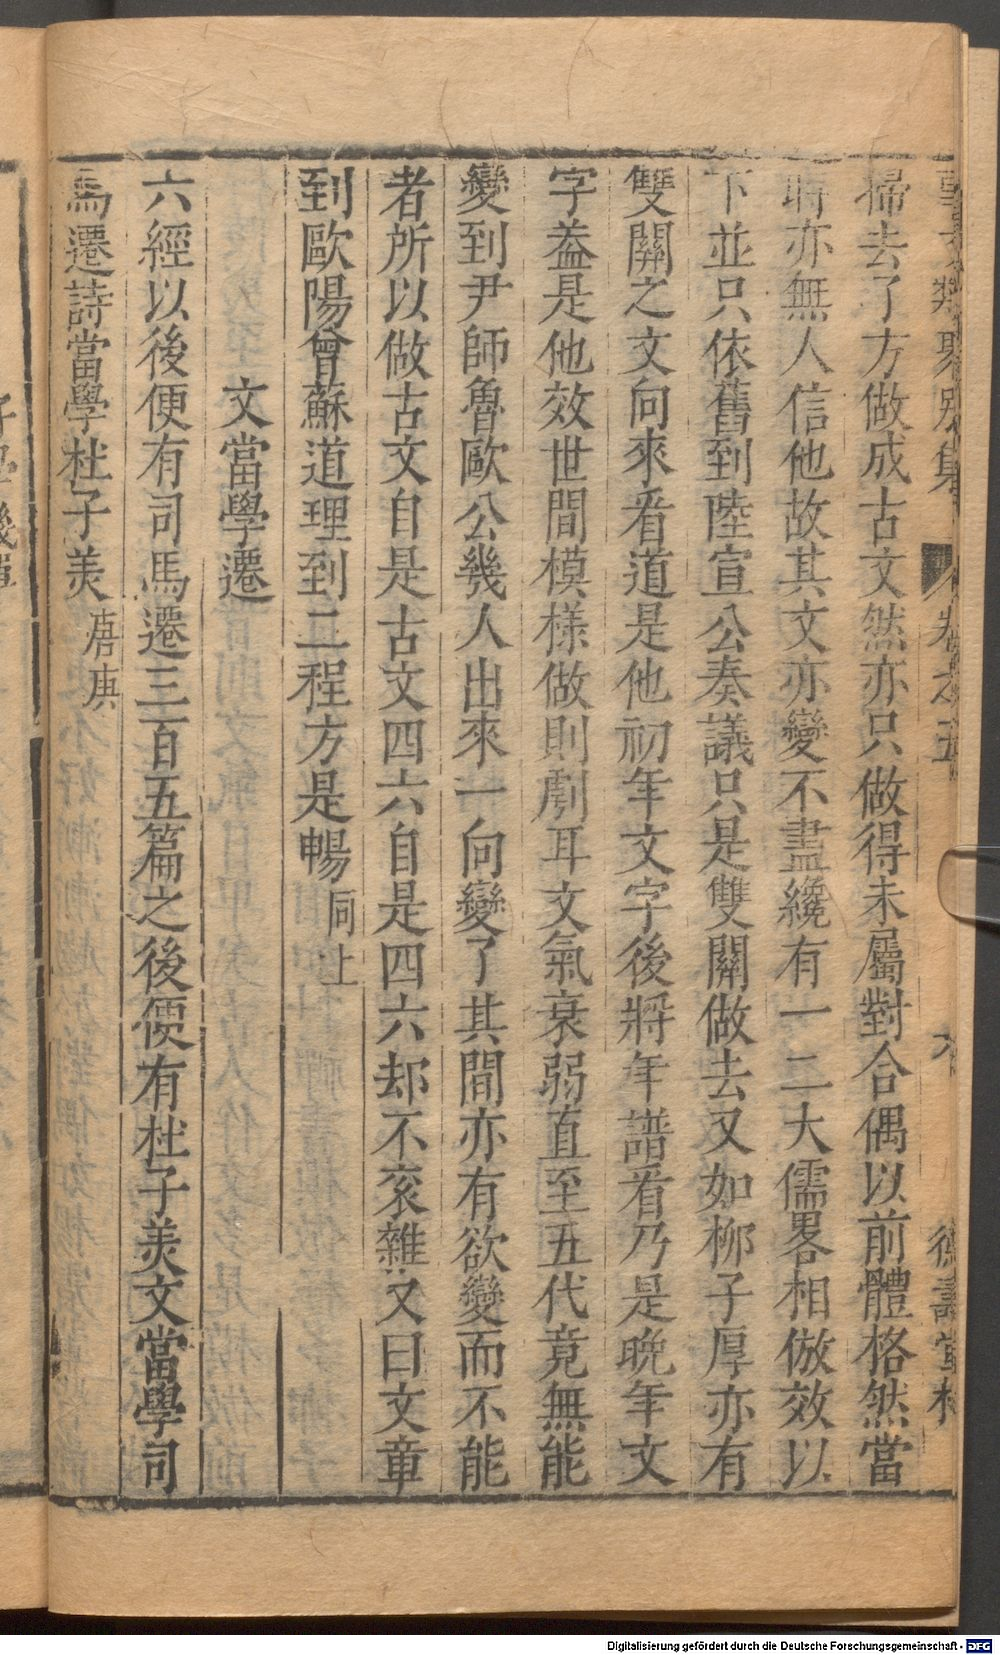 掃去了方做成古文然亦只做得未屬對合偶以前體格然當
時亦無人信他故其文亦變不盡纔有一二大儒畧相倣效以
下並只依舊到陸宣公奏議只是雙關做去又如柳子厚亦有
雙關之文向來看道是他初年文字後將年譜看乃是晚年文
字葢是他效世間模様做則劇耳文氣衰弱直至五代竟無能
變到尹師魯歐公幾人出來一向變了其間亦有欲變而不能
者所以做古文自是古文四六自是四六却不衮雜又曰文章
到歐陽曾蘇道理到二程方是暢同上
文當學遷
六經以後便有司馬遷三百五篇之後便有杜子美文當學司
馬遷詩當學杜子美唐庚
Digitalisierung gefördert durch die Deutsche Forschungsgemeinschaft - DFG